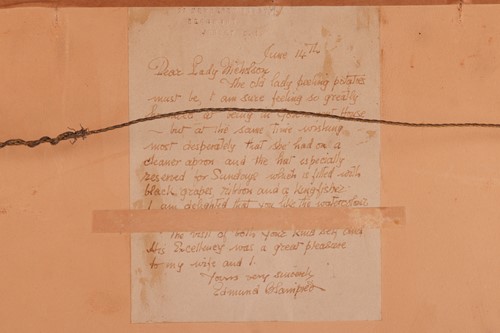 June 14th
Dear Lady Nicholson
The old lady peeling potatoes
must be, I am sure feeling so greatly
at being in Government House
- but at the same time wishing
most desperately that she had on a
cleaner apron and the hat especially
reserved for Sundays which is filled with
black grapes ribbon and a kingfisher.
I am delighted that you like the watercolour
The visit of both your kind self and
His Excellency was a great pleasure
to my wife and I.
Yours very sincerely
Edmund